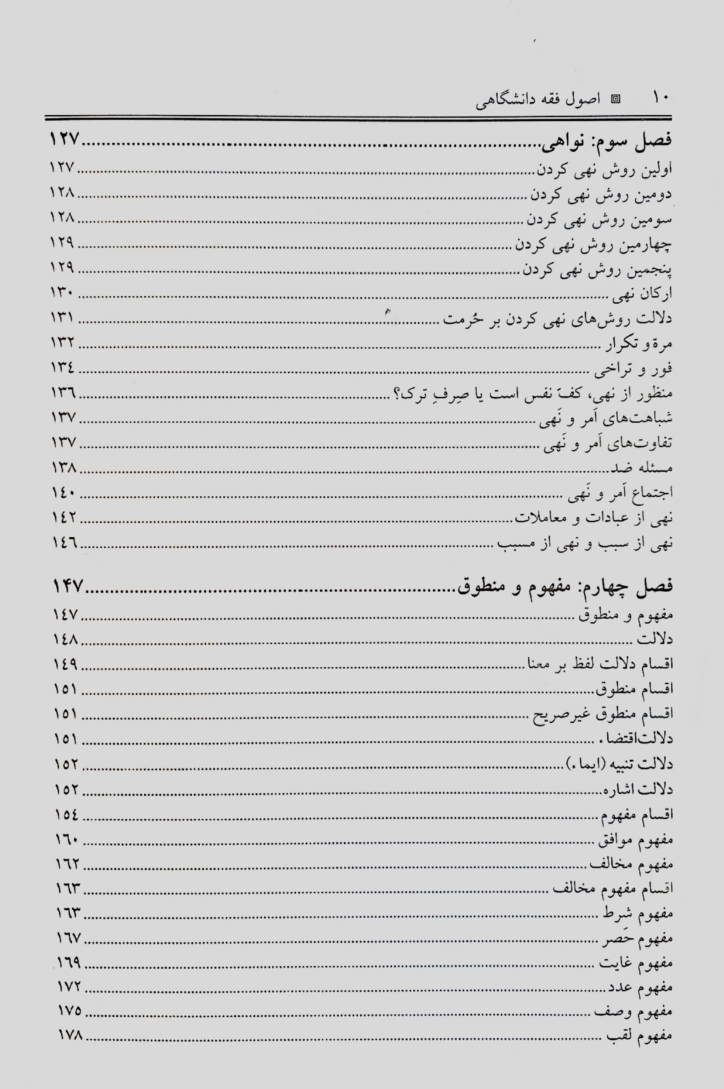 ۱۰ ▣ اصول فقه دانشگاهی
فصل سوم: نواهی ۱۲۷
اولین روش نهی کردن ۱۲۷
دومین روش نهی کردن ۱۲۸
سومین روش نهی کردن ۱۲۸
چهارمین روش نهی کردن ۱۲۹
پنجمین روش نهی کردن ۱۲۹
ارکان نهی ۱۳۰
دلالت روش‌های نهی کردن بر حُرمت ۱۳۱
مرة و تکرار ۱۳۲
فور و تراخی ۱۳٤
منظور از نهی، کفّ نفس است یا صِرفِ ترک؟ ۱۳٦
شباهت‌های اَمر و نَهی ۱۳۷
تفاوت‌های اَمر و نَهی ۱۳۷
مسئله ضد ۱۳۸
اجتماع اَمر و نَهی ۱٤۰
نهی از عبادات و معاملات ۱٤۲
نهی از سبب و نهی از مسبب ۱٤٦
فصل چهارم: مفهوم و منطوق ۱۴۷
مفهوم و منطوق ۱٤۷
دلالت ۱٤۸
اقسام دلالت لفظ بر معنا ۱٤۹
اقسام منطوق ۱٥۱
اقسام منطوق غیرصریح ۱٥۱
دلالت‌اقتضاء ۱٥۱
دلالت تنبیه (ایماء) ۱٥۲
دلالت اشاره ۱٥۲
اقسام مفهوم ۱٥٤
مفهوم موافق ۱٦۰
مفهوم مخالف ۱٦۲
اقسام مفهوم مخالف ۱٦۳
مفهوم شرط ۱٦۳
مفهوم حَصر ۱٦۷
مفهوم غایت ۱٦۹
مفهوم عدد ۱۷۲
مفهوم وصف ۱۷٥
مفهوم لقب ۱۷۸